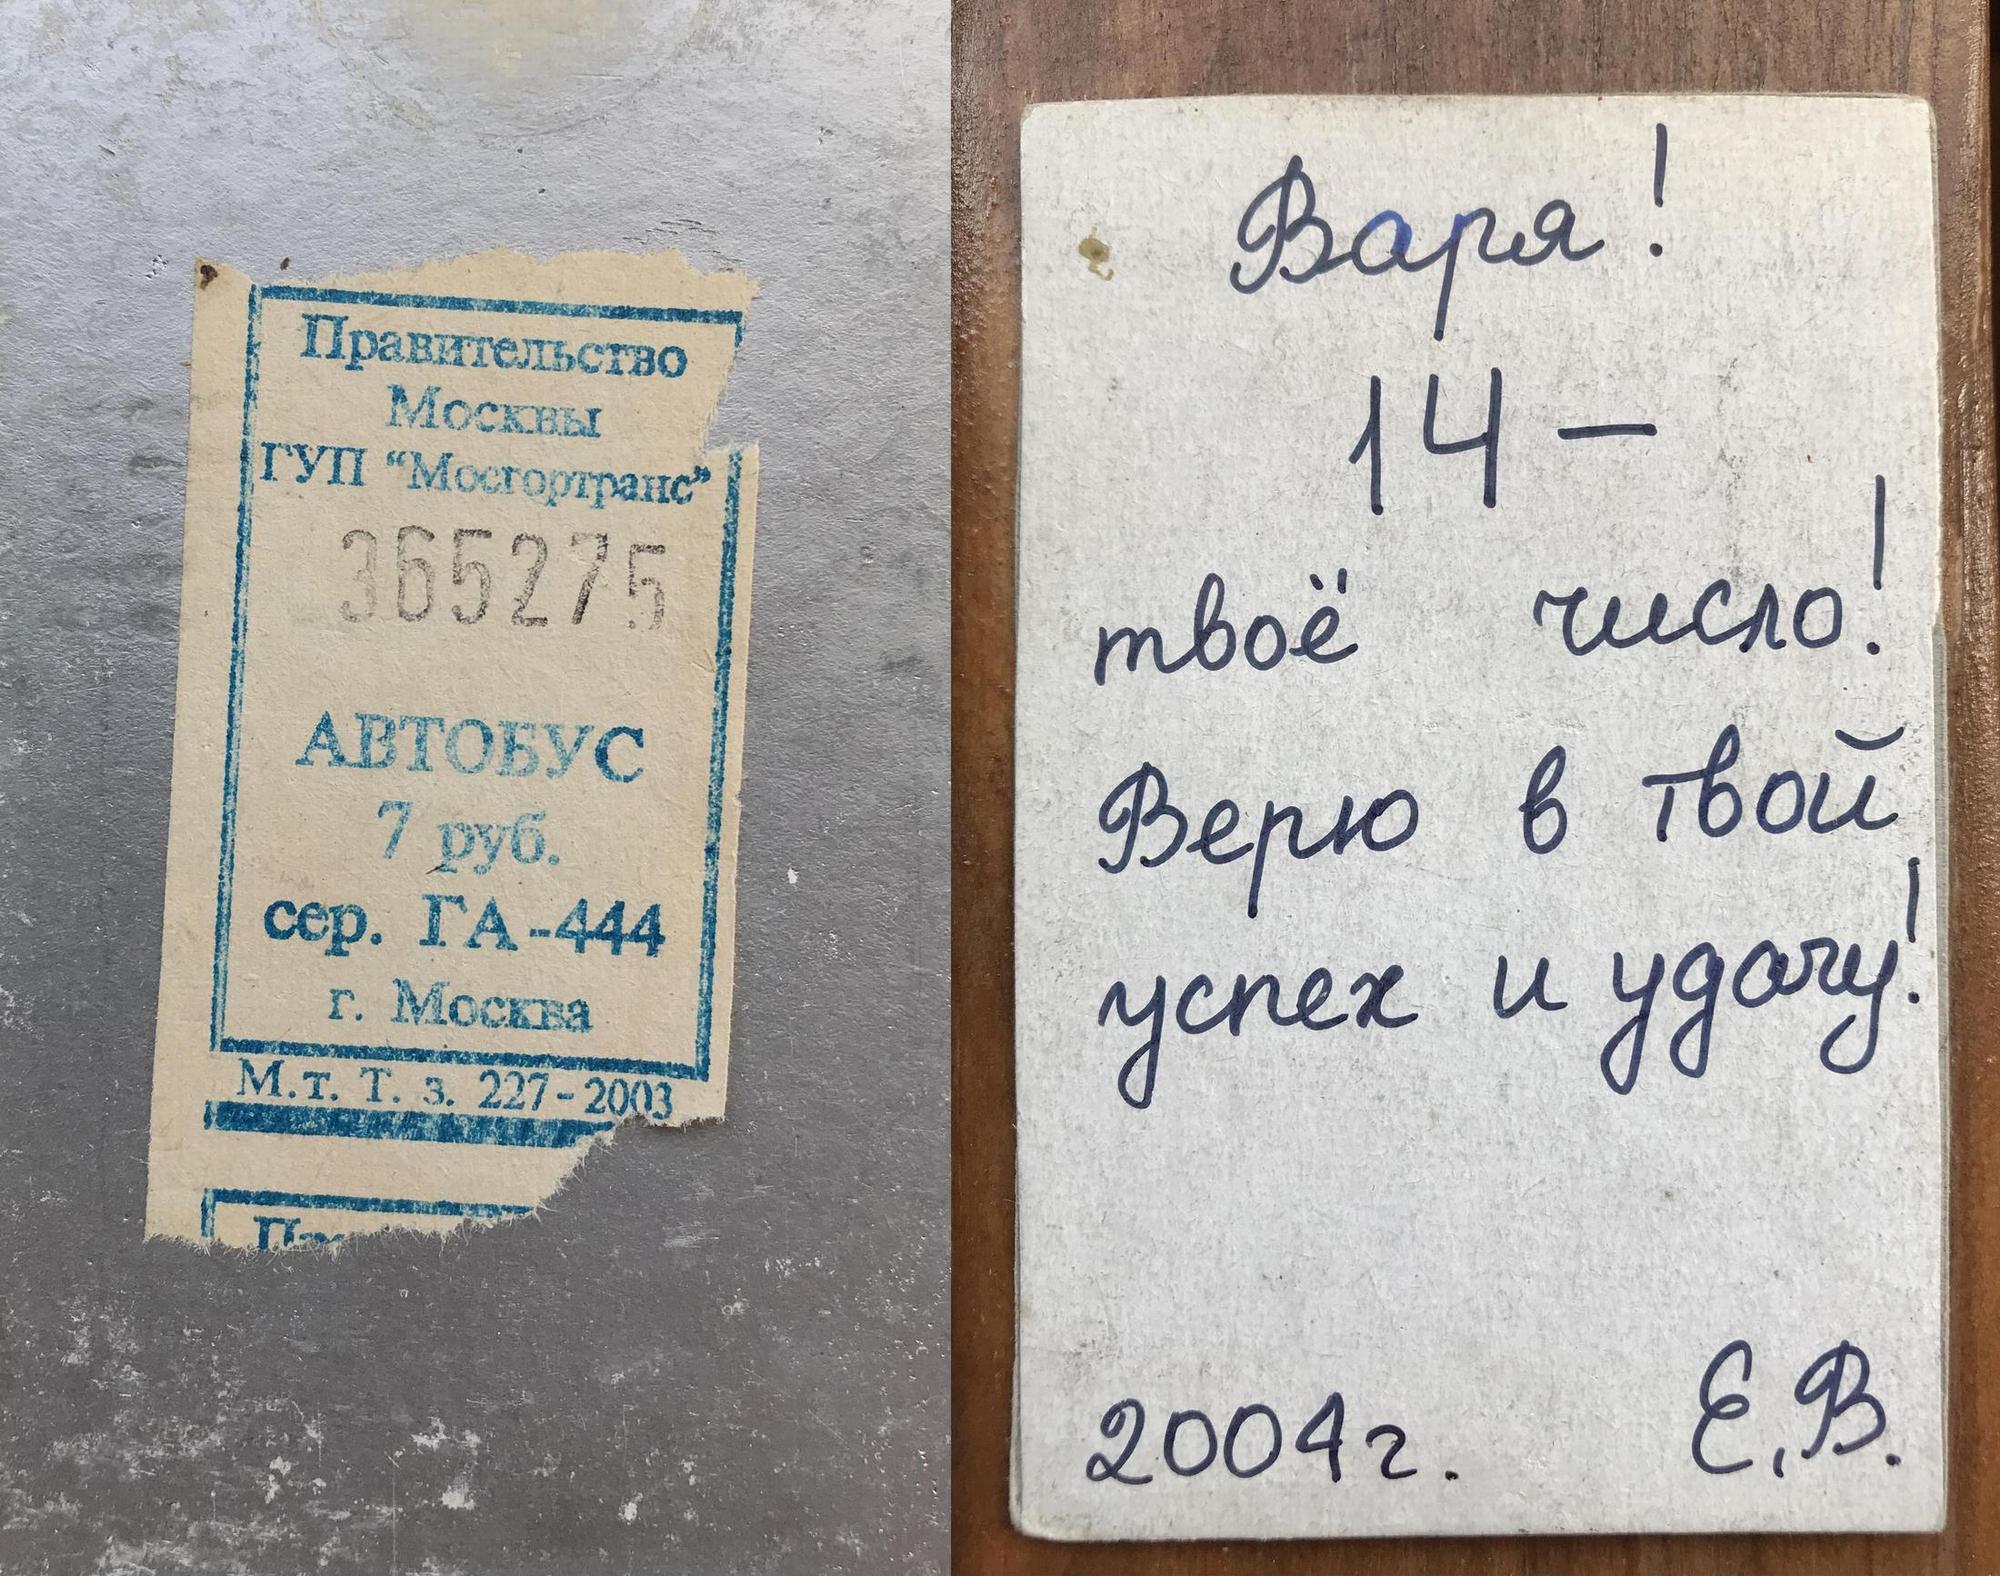 Правительство
Москвы
ГУП "Мосгортранс"
365275
АВТОБУС
7 руб.
сер. ГА-444
г. Москва
М.т. Т. з. 227-2003
Варя!
14 –
твоё число!
Верю в твой
успех и удачу!
2004г. Е.В.